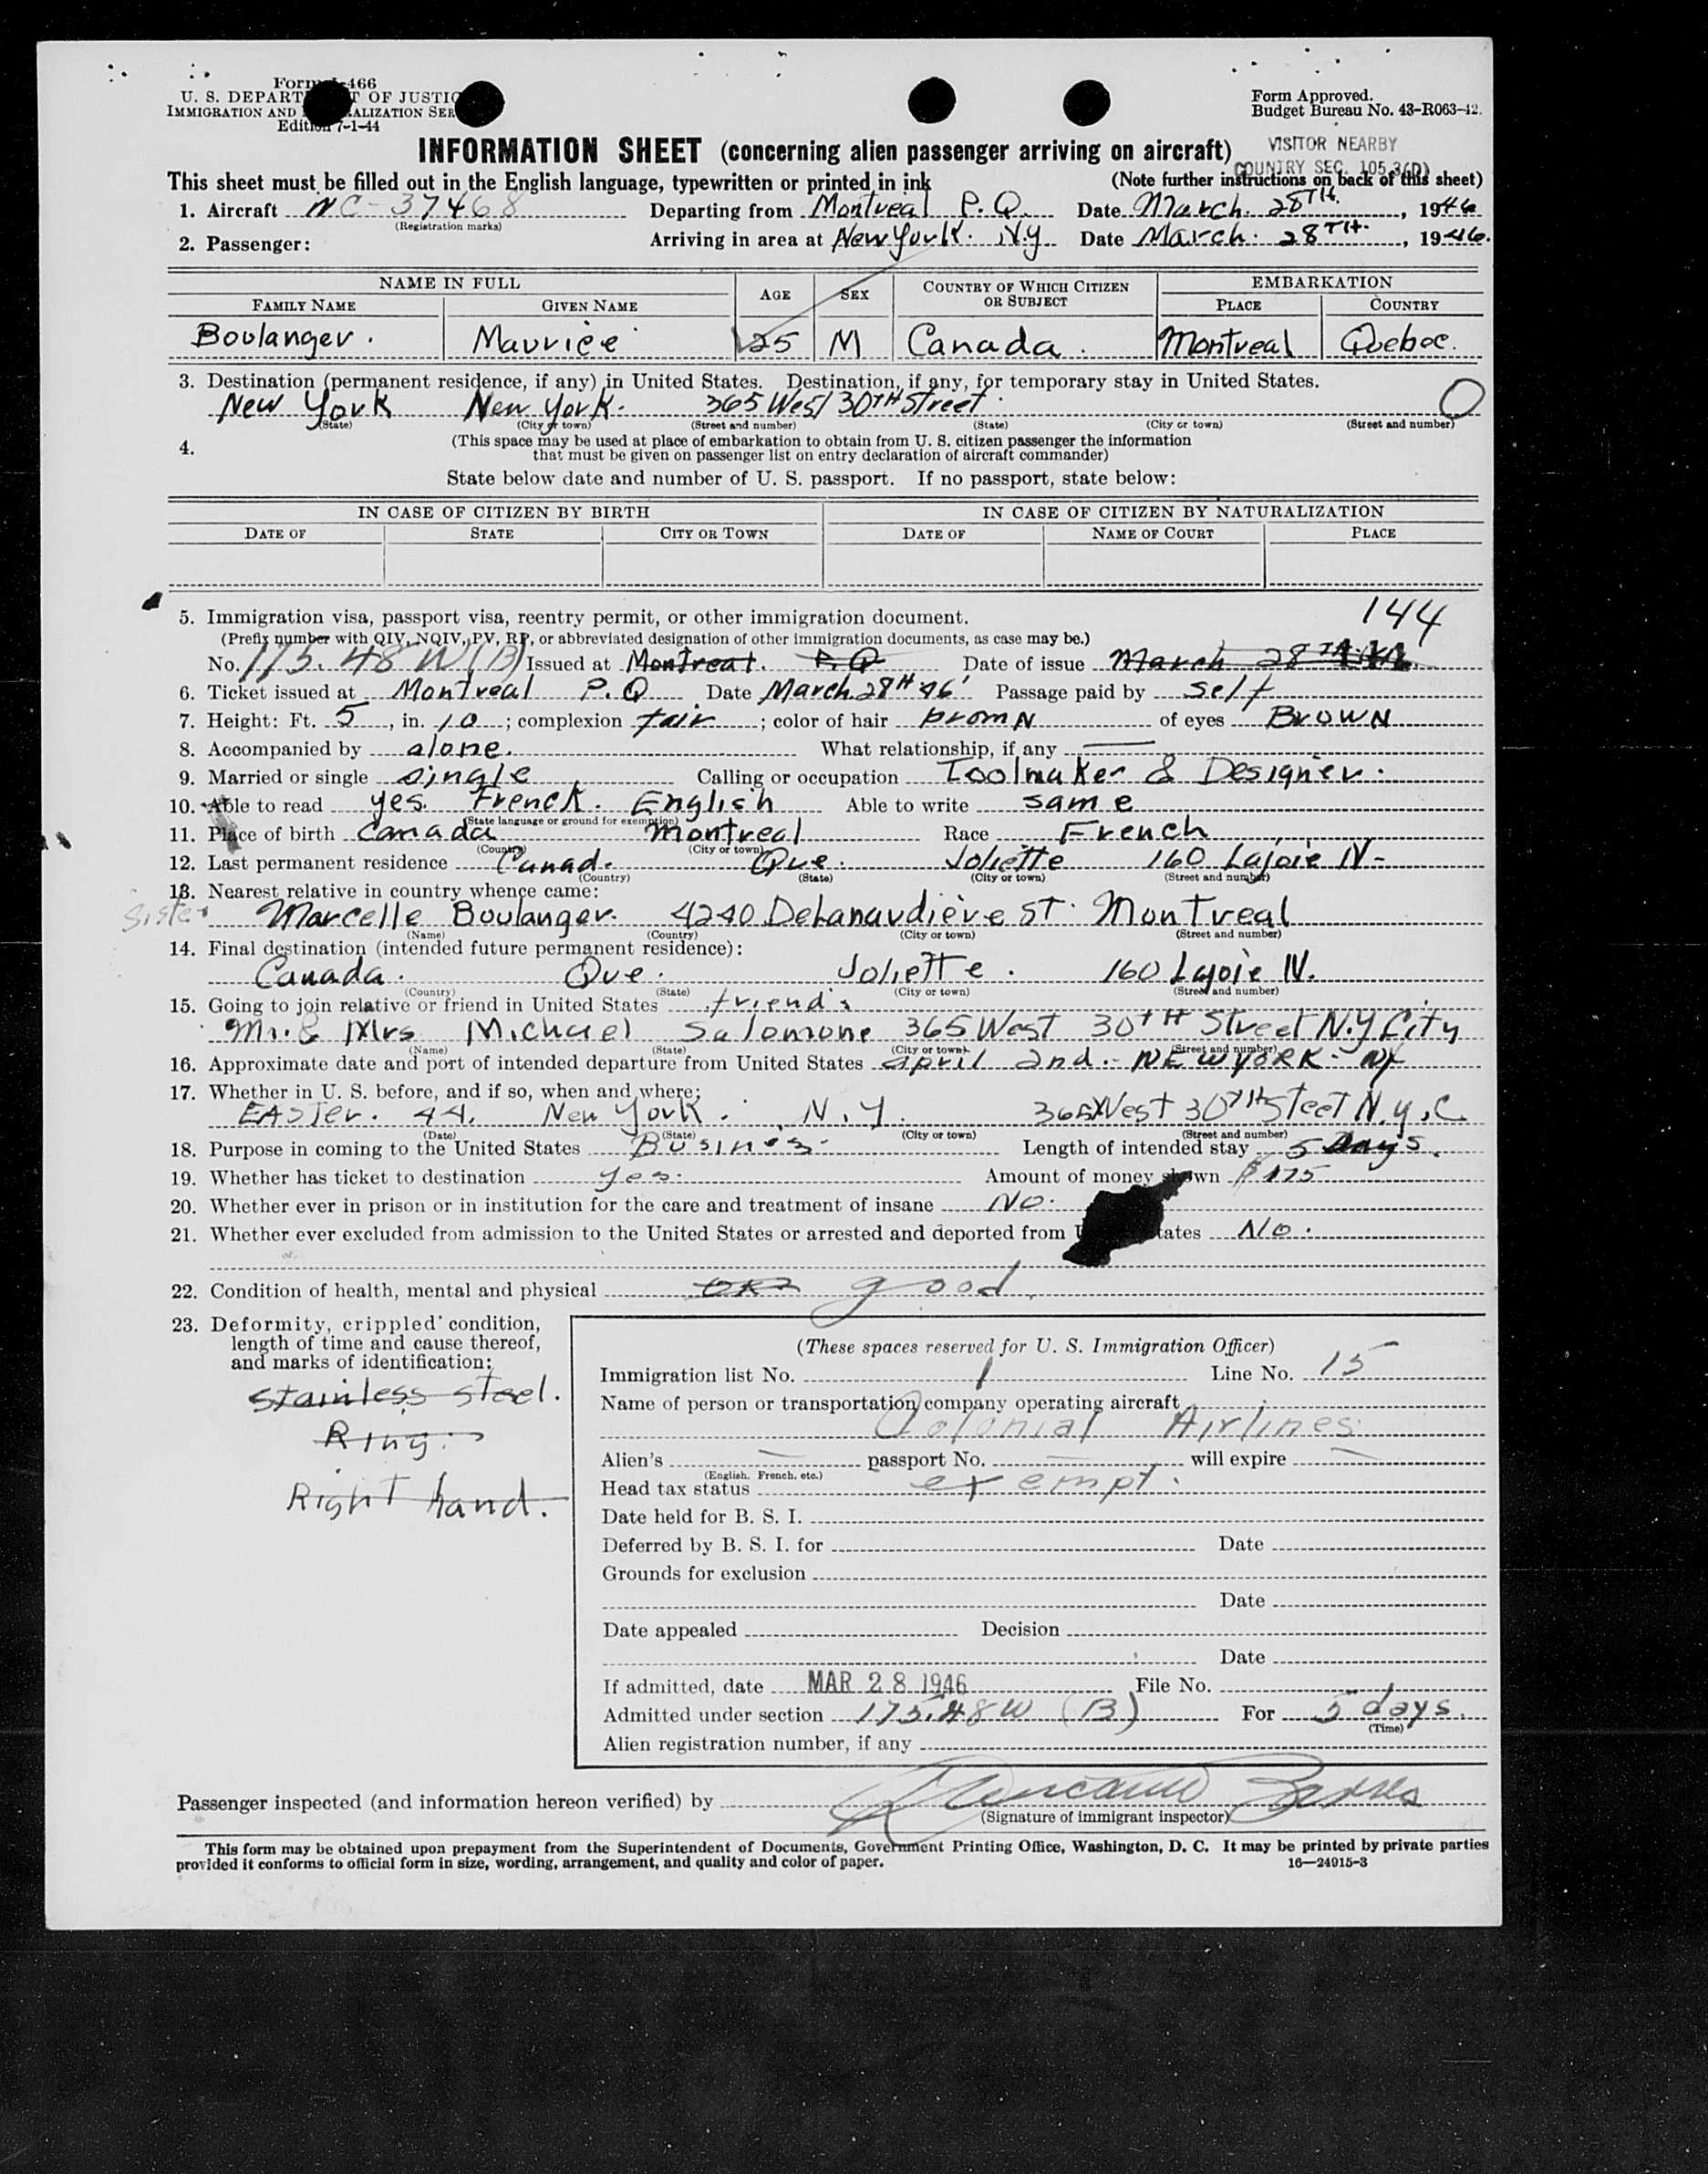 Form I-466
U. S. DEPARTMENT OF JUSTICE
IMMIGRATION AND NATURALIZATION SER
Edition 7-1-44
Form Approved.
Budget Bureau No. 43-R063-42.
INFORMATION SHEET (concerning alien passenger arriving on aircraft)
VISITOR NEARBY
COUNTRY SEC. 105.3(D)
This sheet must be filled out in the English language, typewritten or printed in ink
(Note further instructions on back of this sheet)
1. Aircraft NC-37468 Departing from Montreal P.Q. Date March. 28TH., 1946
(Registration marks)
2. Passenger: Arriving in area at New York. N.y Date March. 28TH., 1946.
NAME IN FULL AGE SEX COUNTRY OF WHICH CITIZEN OR SUBJECT EMBARKATION
FAMILY NAME GIVEN NAME PLACE COUNTRY
Boulanger. Maurice 25 M Canada. Montreal Quebec.
3. Destination (permanent residence, if any) in United States. Destination, if any, for temporary stay in United States.
New York New York. 365 West 30TH Street. O
(State) (City or town) (Street and number) (State) (City or town) (Street and number)
4. (This space may be used at place of embarkation to obtain from U. S. citizen passenger the information
that must be given on passenger list on entry declaration of aircraft commander)
State below date and number of U. S. passport. If no passport, state below:
IN CASE OF CITIZEN BY BIRTH IN CASE OF CITIZEN BY NATURALIZATION
DATE OF STATE CITY OR TOWN DATE OF NAME OF COURT PLACE
5. Immigration visa, passport visa, reentry permit, or other immigration document. 144
(Prefix number with QIV, NQIV, PV, RP, or abbreviated designation of other immigration documents, as case may be.)
No. 175.48 W (B) Issued at Montreal. P.Q Date of issue March 28TH
6. Ticket issued at Montreal P.Q Date March 28H 46' Passage paid by self
7. Height: Ft. 5, in. 10; complexion fair; color of hair brown of eyes Brown
8. Accompanied by alone. What relationship, if any —
9. Married or single single Calling or occupation Toolmaker & Designer.
10. Able to read yes. French. English Able to write same
(State language or ground for exemption)
11. Place of birth Canada Montreal Race French
(Country) (City or town)
12. Last permanent residence Canad. Que. Joliette 160 Lajoie N-
(Country) (State) (City or town) (Street and number)
13. Nearest relative in country whence came:
Sister Marcelle Boulanger. 4240 DeLanaudière ST. Montreal
(Name) (Country) (City or town) (Street and number)
14. Final destination (intended future permanent residence):
Canada. Que. Joliette. 160 Lajoie N.
(Country) (State) (City or town) (Street and number)
15. Going to join relative or friend in United States friend's
Mr. & Mrs Michael Salomone 365 West 30TH Street N.Y City
(Name) (State) (City or town) (Street and number)
16. Approximate date and port of intended departure from United States april 2nd.- NEW YORK. NY
17. Whether in U. S. before, and if so, when and where:
EASTer. 44. New York. N.Y. 365 West 30TH Steet N.y.C
(Date) (State) (City or town) (Street and number)
18. Purpose in coming to the United States Busines. Length of intended stay 5 Days.
19. Whether has ticket to destination yes. Amount of money shown $175
20. Whether ever in prison or in institution for the care and treatment of insane No.
21. Whether ever excluded from admission to the United States or arrested and deported from U tates No.
22. Condition of health, mental and physical good.
23. Deformity, crippled condition,
length of time and cause thereof,
and marks of identification:
stainless steel.
Ring.
Right hand.
(These spaces reserved for U. S. Immigration Officer)
Immigration list No. 1 Line No. 15
Name of person or transportation company operating aircraft
Colonial Airlines
Alien's — passport No. — will expire —
(English, French, etc.)
Head tax status exempt.
Date held for B. S. I.
Deferred by B. S. I. for Date
Grounds for exclusion
Date
Date appealed Decision
Date
If admitted, date MAR 28 1946 File No.
Admitted under section 175.48W (B) For 5 days.
(Time)
Alien registration number, if any
Passenger inspected (and information hereon verified) by
(Signature of immigrant inspector)
This form may be obtained upon prepayment from the Superintendent of Documents, Government Printing Office, Washington, D. C. It may be printed by private parties
provided it conforms to official form in size, wording, arrangement, and quality and color of paper. 16—24915-3